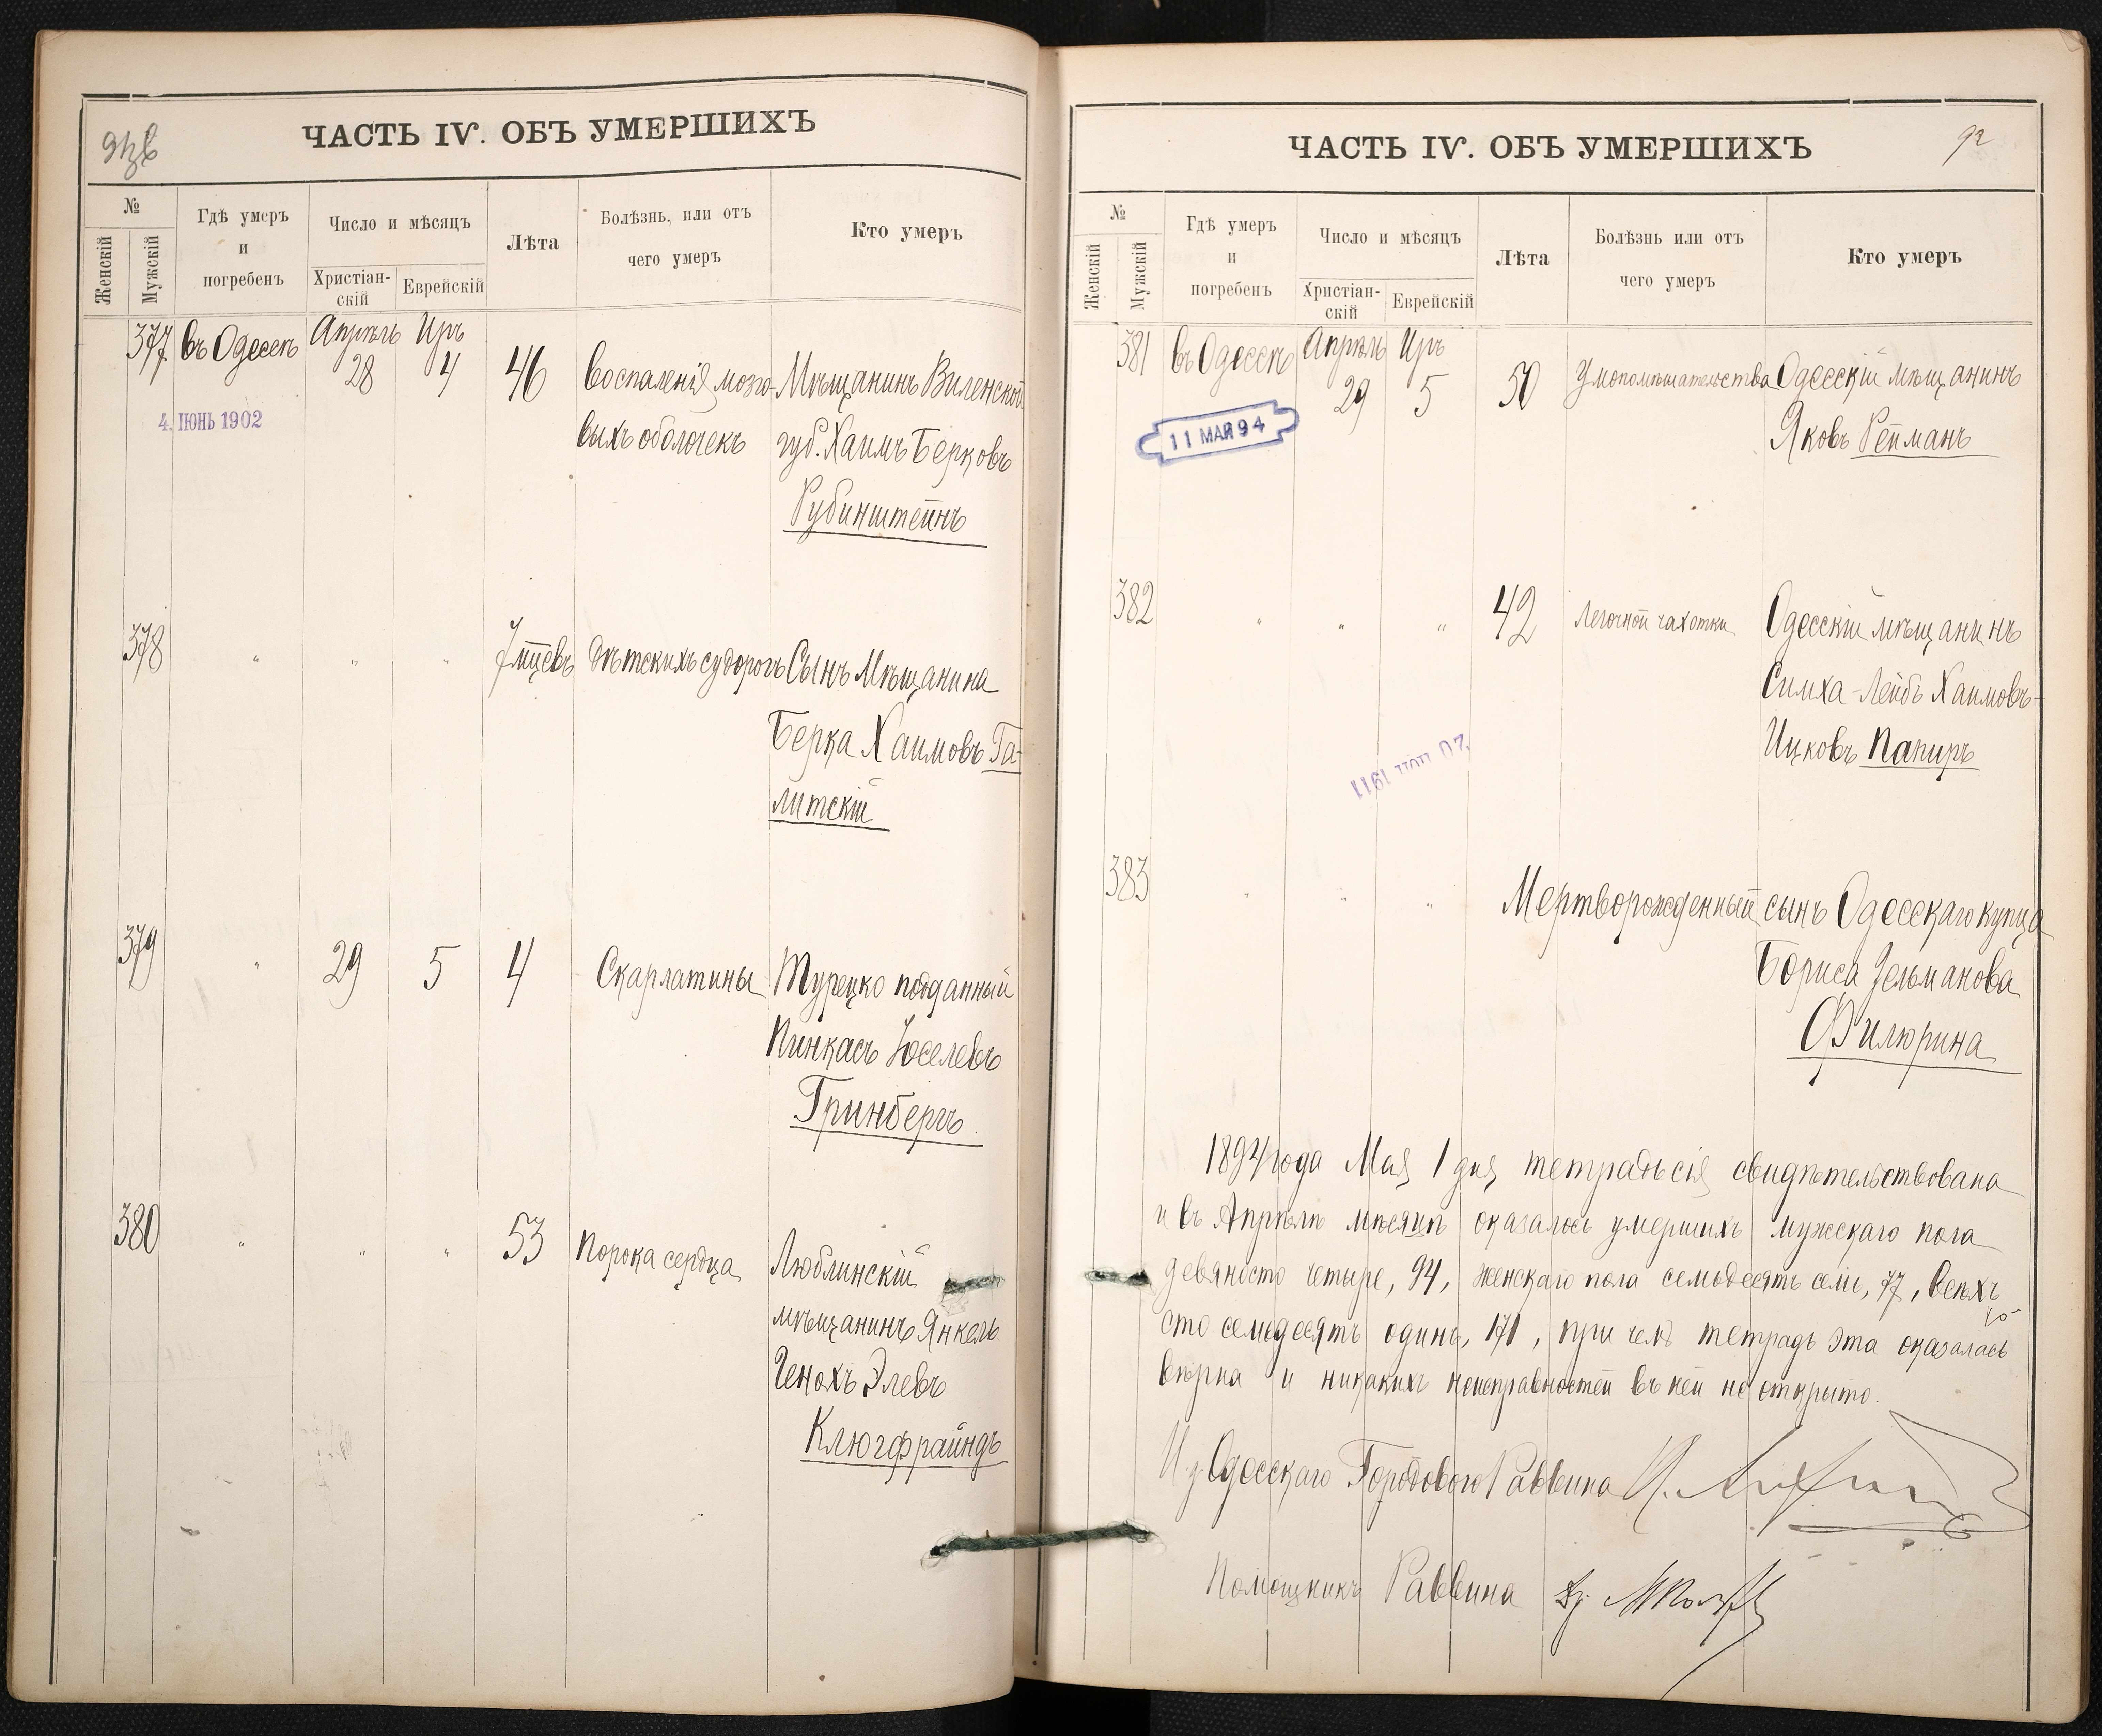 ЧАСТЬ IV. ОБЪ УМЕРШИХЪ
№
Женскій
Мужскій
Гдѣ умеръ
и
погребенъ
Число и мѣсяцъ
Христіан-
скій
Еврейскій
Лѣта
Болѣзнь, или отъ
чего умеръ
Кто умеръ
377 въ Одессѣ Апрѣль Иръ
28 4 46 Воспаленія мозго- Мѣщанинъ Виленской
выхъ оболочекъ губ. Хаимъ Берковъ
Рубинштейнъ
4. ІЮНЬ 1902
378 " " " 7 мцевъ Дѣтскихъ судорогъ Сынъ Мѣщанина
Берка Хаимовъ Га-
литскій
379 " 29 5 4 Скарлатины Турецко подданный
Пинкасъ Іоселевъ
Гринбергъ
380 " " " 53 Порока сердца Люблинскій
мѣщанинъ Янкель
Генохъ Элевъ
Клюгфрайндъ
ЧАСТЬ IV. ОБЪ УМЕРШИХЪ
92
№
Женскій
Мужскій
Гдѣ умеръ
и
погребенъ
Число и мѣсяцъ
Христіан-
скій
Еврейскій
Лѣта
Болѣзнь или отъ
чего умеръ
Кто умеръ
381 въ Одессѣ Апрѣль Иръ
29 5 50 Умопомѣшательства Одесскій мѣщанинъ
Яковъ Рейманъ
11 МАЯ 94
382 " " " 42 Легочной чахотки Одесскій мѣщанинъ
Симха-Лейбъ Хаимовъ-
Ицковъ Папиръ
1911
383 " " " Мертворожденный сынъ Одесскаго купца
Бориса Зельманова
Филюрина
1894 года Мая 1 дня тетрадь сія свидѣтельствована
и въ Апрѣлѣ мѣсяцѣ оказалось умершихъ мужскаго пола
девяносто четыре, 94, женскаго пола семьдесятъ семь, 77, всѣхъ
сто семьдесятъ одинъ, 171, при чемъ тетрадь эта оказалась
вѣрна и никакихъ неисправностей въ ней не открыто.
Одесскаго Городового Раввина
Помощникъ Раввина